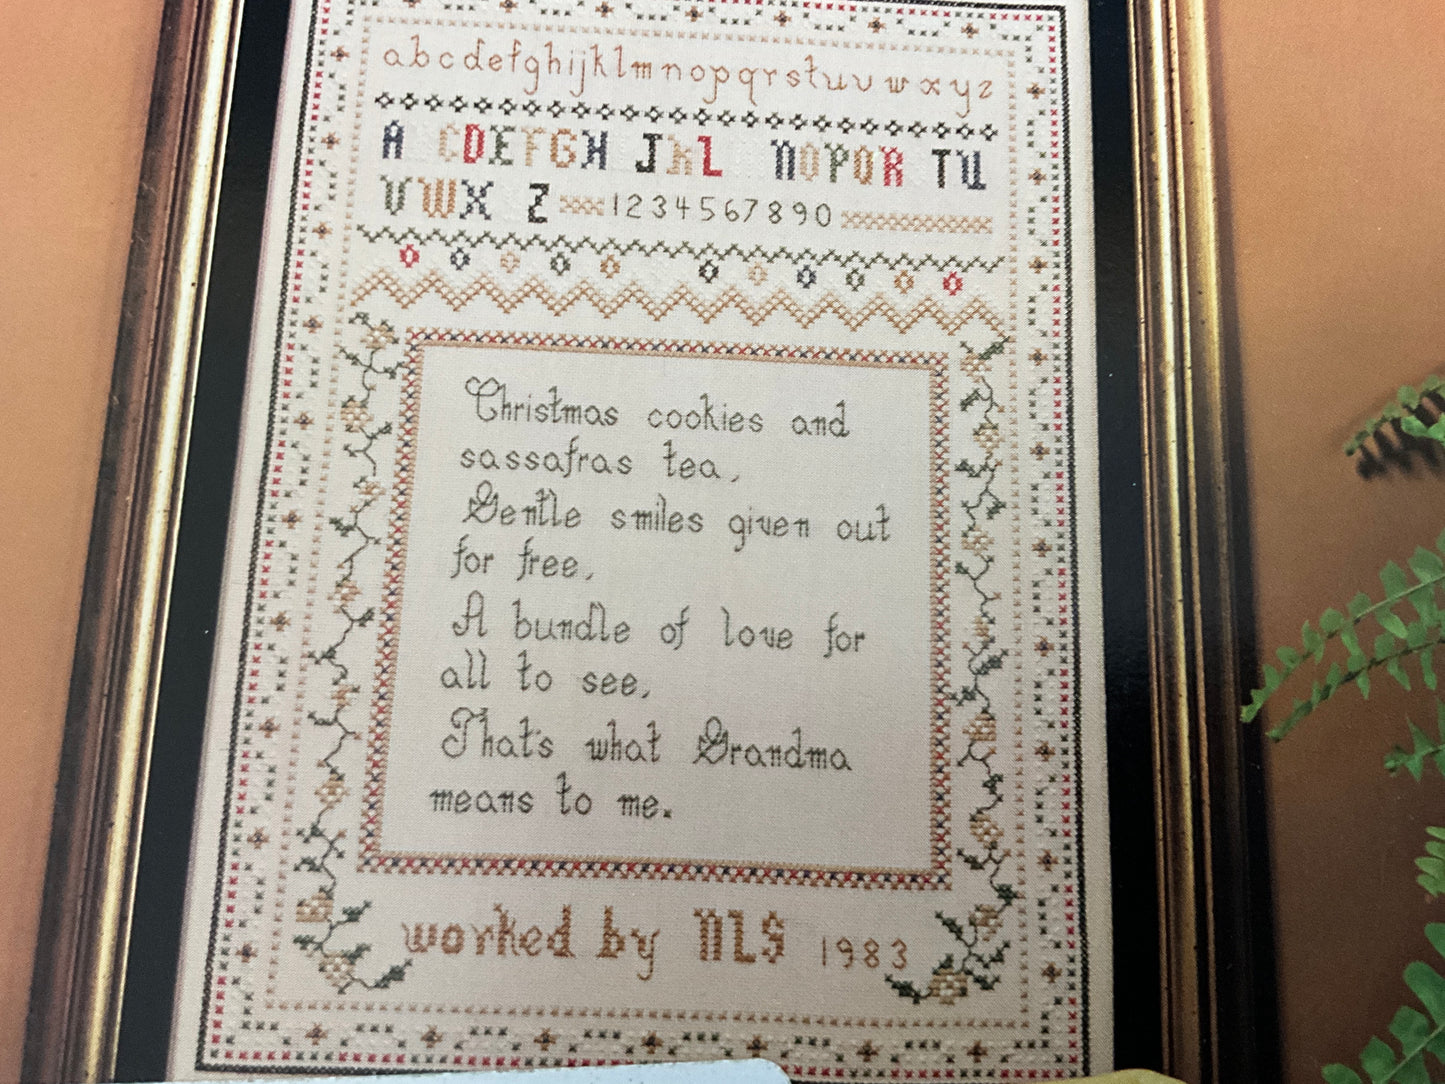 abcdefghijklmnopqrstuvwxyz
A CDEFGH JKL NOPQR TU
VWX Z 1234567890
Christmas cookies and
sassafras tea,
Gentle smiles given out
for free,
A bundle of love for
all to see,
That's what Grandma
means to me.
worked by NLS 1983